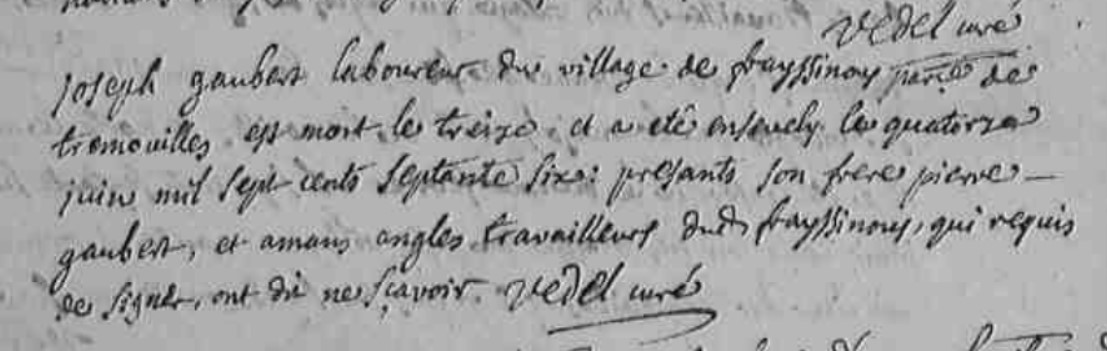 vedel curé
joseph gaubert laboureur du village de frayssinous parce de
tremouilles est mort le treize, et a eté ensevely le quatorze
juin mil sept cents septante six: présants son frere pierre
gaubert, et amans angles travailleurs dud frayssinous, qui requis
de signer, ont dit ne sçavoir. vedel curé